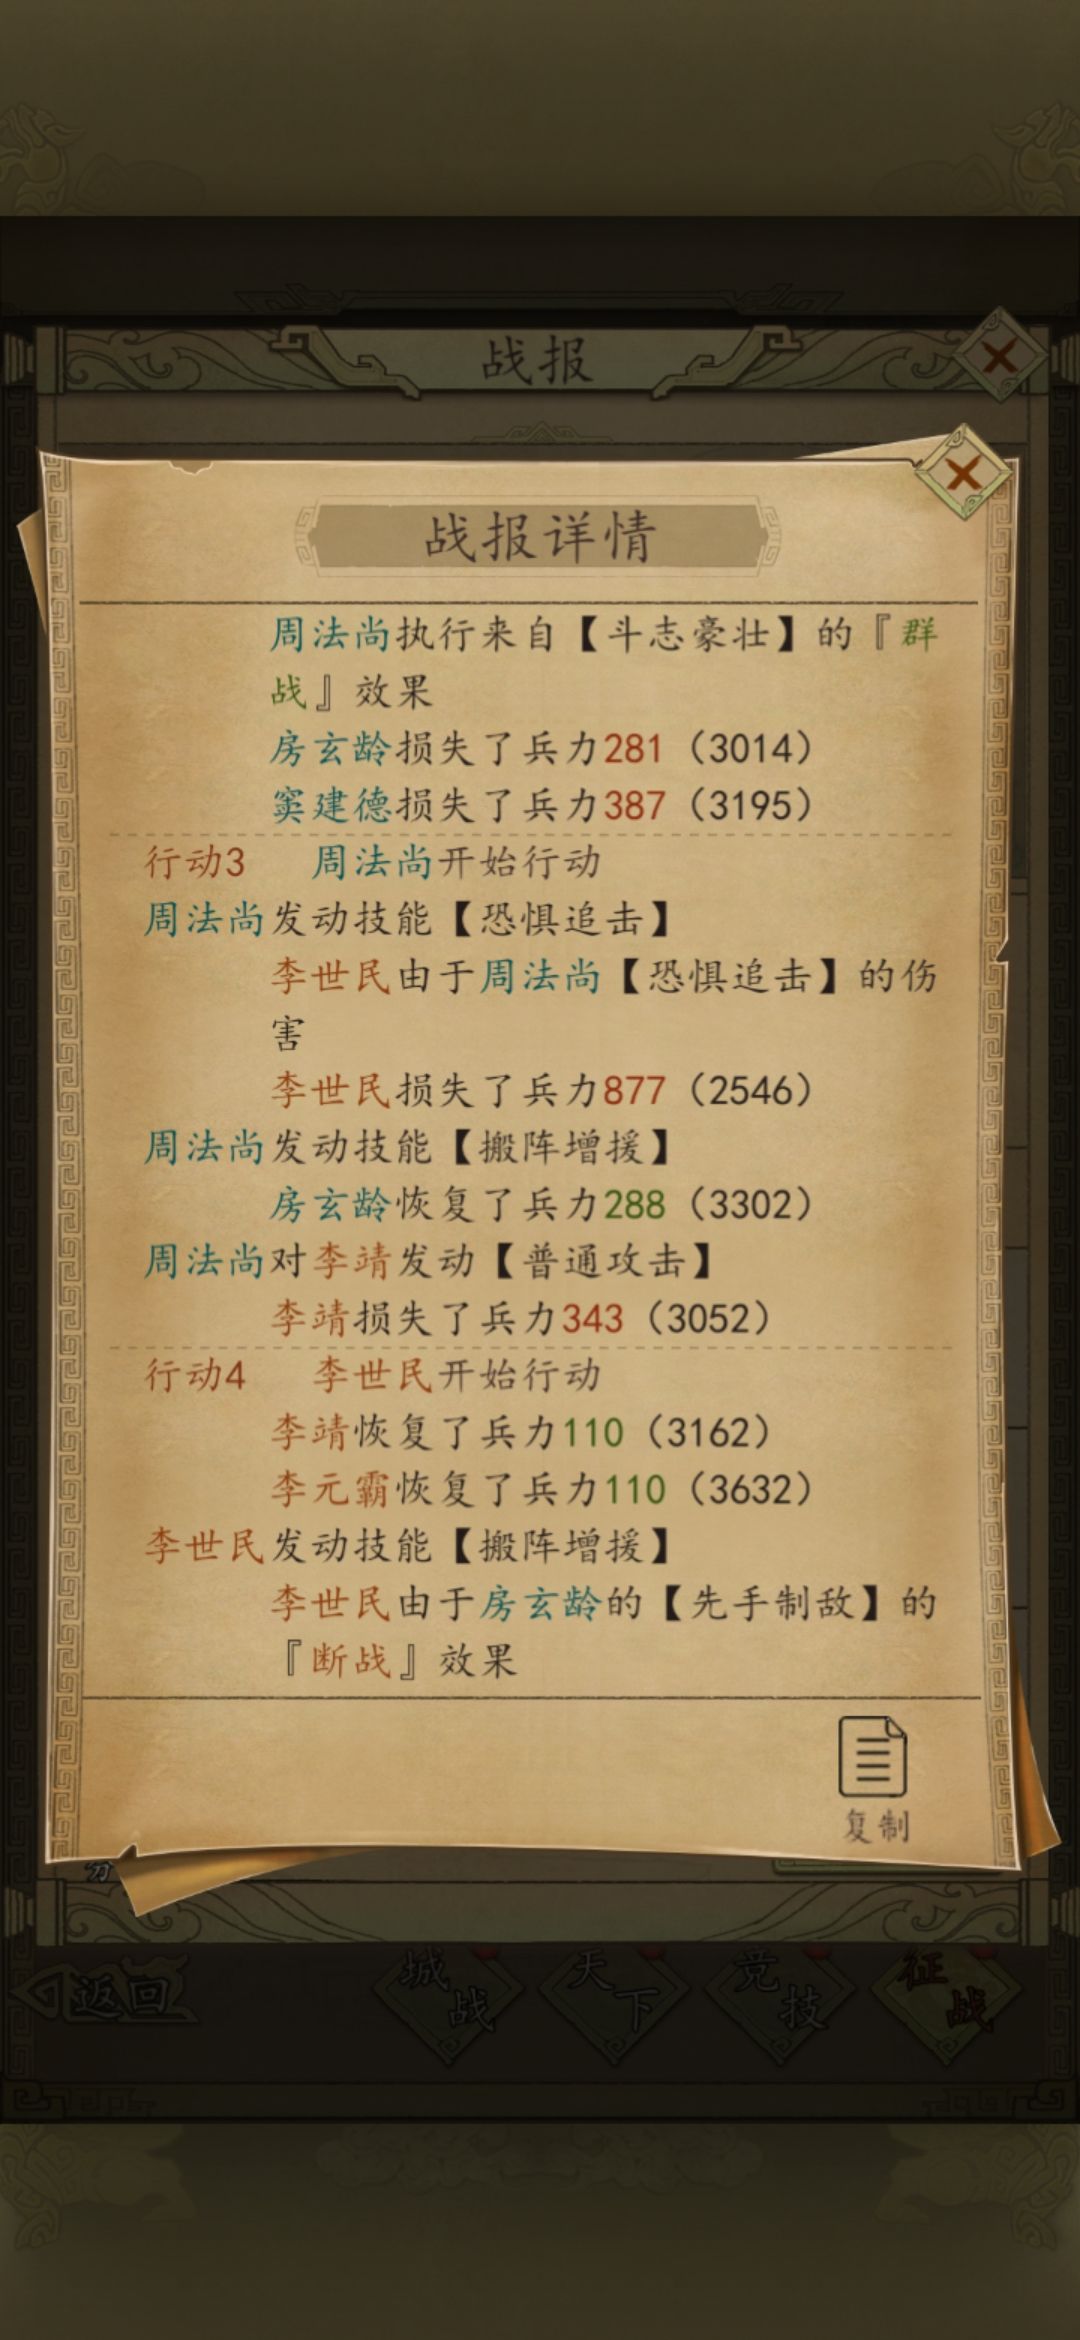 战报
战报详情
周法尚执行来自【斗志豪壮】的『群
战』效果
房玄龄损失了兵力281（3014）
窦建德损失了兵力387（3195）
行动3 周法尚开始行动
周法尚发动技能【恐惧追击】
李世民由于周法尚【恐惧追击】的伤
害
李世民损失了兵力877（2546）
周法尚发动技能【搬阵增援】
房玄龄恢复了兵力288（3302）
周法尚对李靖发动【普通攻击】
李靖损失了兵力343（3052）
行动4 李世民开始行动
李靖恢复了兵力110（3162）
李元霸恢复了兵力110（3632）
李世民发动技能【搬阵增援】
李世民由于房玄龄的【先手制敌】的
『断战』效果
复制
返回 城战 天下 竞技 征战